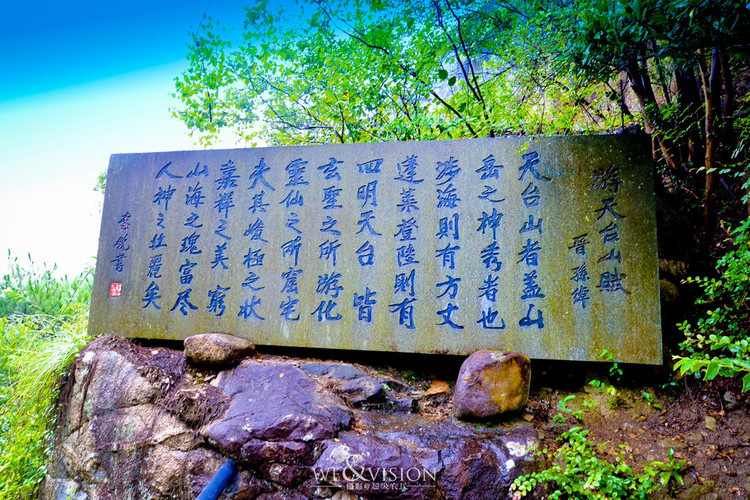 游天台山賦
晉孫綽
天台山者盖山
岳之神秀者也
涉海則有方丈
蓬萊登陸則有
四明天台皆
玄聖之所游化
靈仙之所窟宅
夫其峻極之狀
嘉祥之美窮
山海之瑰富盡
人神之壯麗矣
WE&VISION